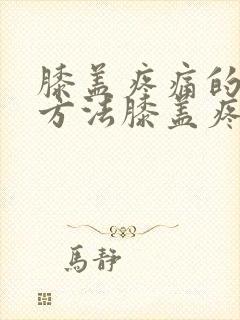 膝盖疼痛的
方法膝盖疼
馬靜